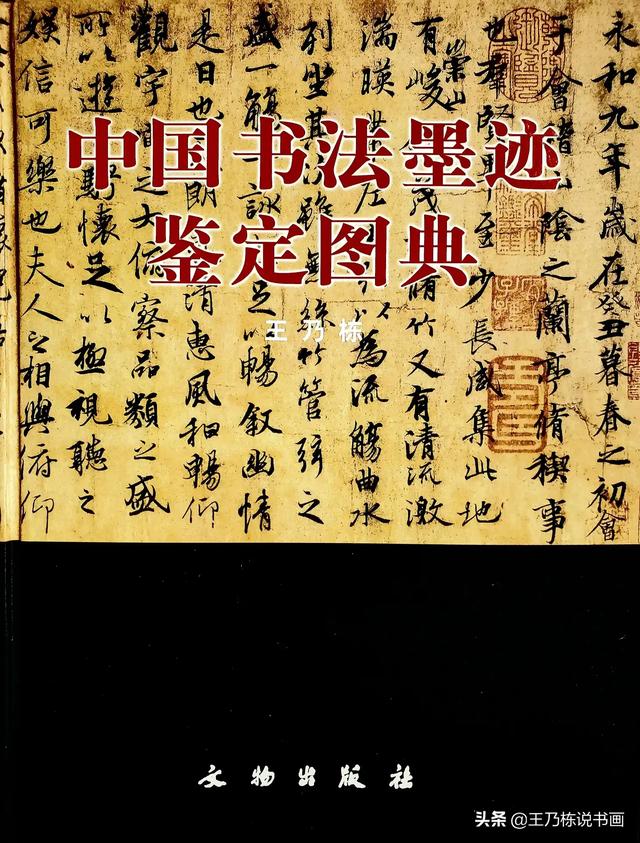 中国书法墨迹
鉴定图典
王乃栋
永和九年歲在癸丑暮春之初會
于會稽陰之蘭亭脩稧事
也羣賢畢至少長咸集此地
有崇山峻茂脩竹又有清流激
湍暎帶左為流觴曲水
列坐其雖無絲竹管弦之
盛一觴一詠足以暢敘幽情
是日也朗清惠風和暢仰
觀宇宙之大俯察品類之盛
所以遊騁懷足以極視聽之
娛信可樂也夫人之相與俯仰
文物出版社
头条 @王乃栋说书画